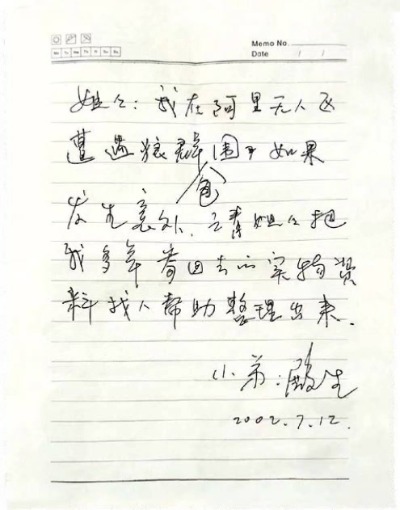 Memo No.
Date / /
Mo Tu We Th Fr Sa Su
姐姐：我在阿里无人区
遭遇狼群包围了如果
发生意外，请姐姐把
我多年寄回去的实物资
料找人帮助整理出来.
小弟：殷生
2002.7.12.